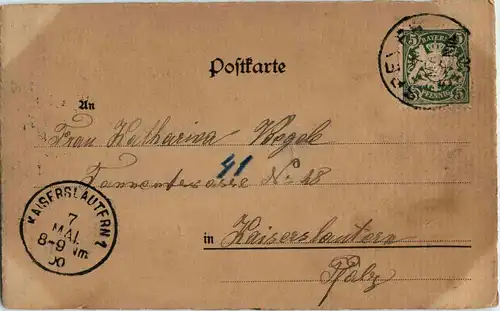 Postkarte
5 BAYERN 5
PFENNIG
An
Frau Katharina Vogel
41
Tannenstrasse No 18
in Kaiserslautern
Pfalz
KAISERSLAUTERN 1
7
MAI.
8-9 Nm
00